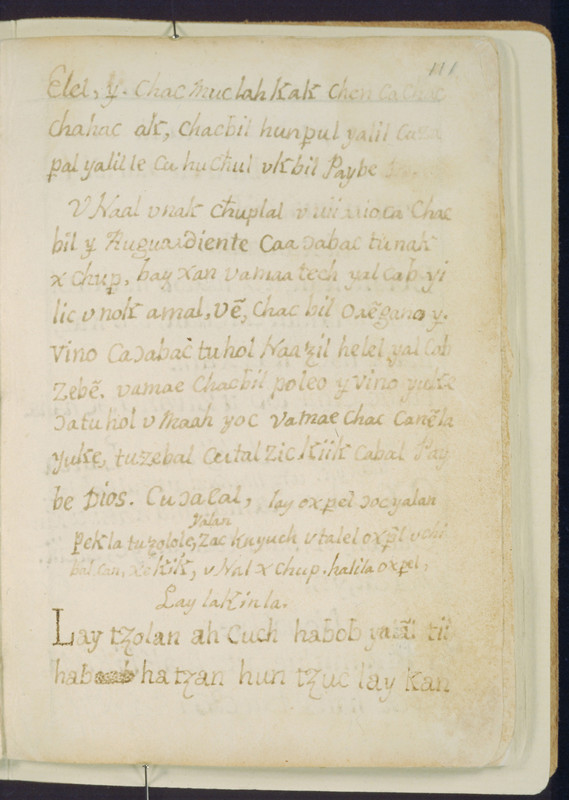 111
Elel, y. chac muclah kak chen ca chac
chahac ak, chacbil hunpul yalil
pal yalil le cu huchul vkbil Paybe
V Naal vnak chuplal chac
bil y Auguardiente Caa ɔabac tu nak
x chup, bay xan vamaa tech yal cab yi
lic v nok amal, vẽ, chac bil oregano y.
vino Ca ɔabac tu hol Naaꜩil helel yal cab
Zebẽ. vamae Chacbil poleo y vino yuke
ɔa tu hol v maah yoc vamae chac canẽla
yuke, tuzebal cutal Zic kiik cabal Pay
be Dios. Cu ɔa cal, lay oxpel ɔoc yalan
yalan
pek la tuzolole, Zac knyuch v talel oxpl v chi
bal can, xe kik, v Nal x chup. halila oxpel,
Lay la kin la.
Lay tꜩolan ah Cuch habob yatãl til
hab hatꜩan hun tꜩuc lay kan